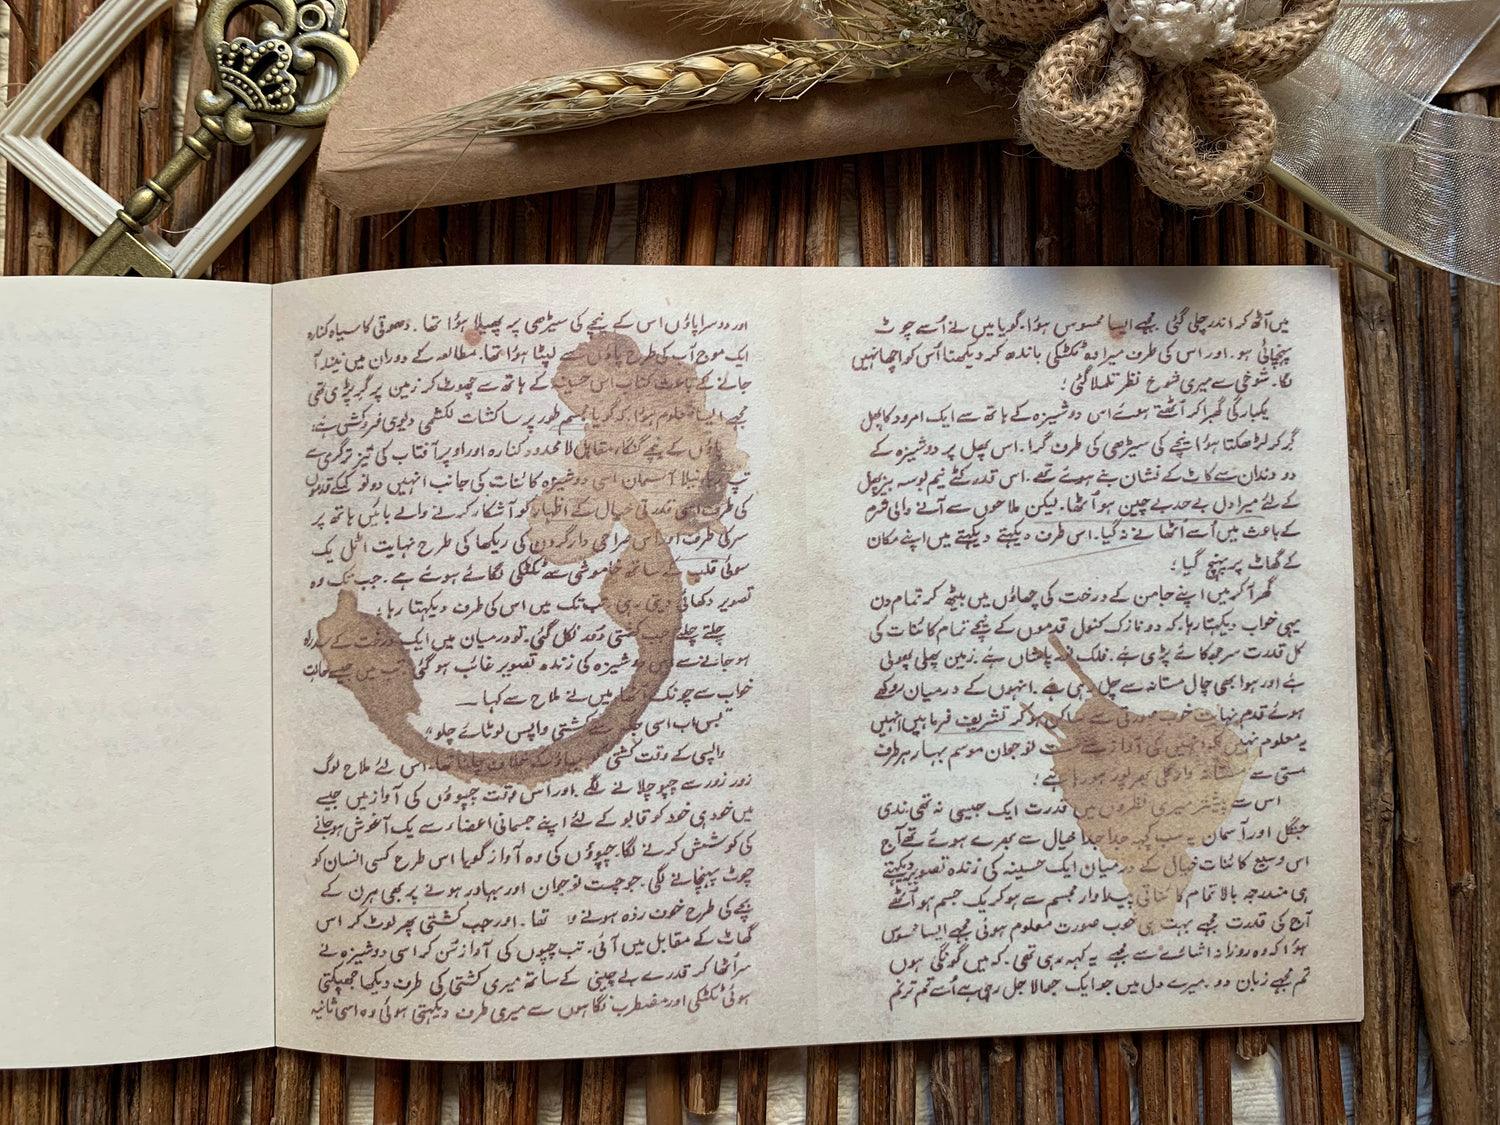 میں اٹھ کر اندر چلی گئی مجھے ایسا محسوس ہوا۔ گویا میں نے اُسے چوٹ
پہنچائی ہو۔ اور اس کی طرف میرا وہ ٹکٹکی باندھ کر دیکھنا اُس کو اچھا نہیں
لگا۔ شوخی سے میری شوخ نظر تلملا گئی؛
یکبارگی گھبرا کر اُٹھتے ہوئے اس دوشیزہ کے ہاتھ سے ایک امرود کا پھل
گر کر لڑھکتا ہوا نیچے کی سیڑھی کی طرف گرا۔ اس پھل پر دوشیزہ کے
دو دندان سے کاٹ کے نشان بنے ہوئے تھے۔ اس قدر کٹے نیم بوسہ بیز پھل
کے لئے میرا دل بے حد بے چین ہو اُٹھا۔ لیکن ملاحوں سے آنے والی شرم
کے باعث میں اُسے اُٹھا نے نہ گیا۔ اس طرف دیکھتے دیکھتے میں اپنے مکان
کے گھاٹ پر پہنچ گیا؛
گھر آکر میں اپنے جامن کے درخت کی چھاؤں میں بیٹھ کر تمام دن
یہی خواب دیکھتا رہا، کہ دو نازک کنول قدموں کے نیچے تمام کائنات کی
کل قدرت سر جھکائے پڑی ہے۔ فلک نور پاشاں ہے۔ زمین پھلی پھولی
ہے اور ہوا بھی چال مستانہ سے چل رہی ہے۔ انہوں کے درمیان روکھے
ہوئے قدم نہایت خوب صورتی سے ساکن ہو کر تشریف فرما ہیں انہیں
یہ معلوم نہیں کہ انہیں کی آواز سے مست نوجوان موسم بہار ہر طرف
مستی سے مستانہ وار گلی بھرپور ہو رہا ہے؛
اس سے پیشتر میری نظروں میں قدرت ایک جیسی نہ تھی۔ ندی
جنگل اور آسمان یہ سب کچھ جدا جدا خیال سے بھرے ہوئے تھے آج
اس وسیع کائنات خیال کے درمیان ایک حسینہ کی زندہ تصویر دیکھتے
ہی مندرجہ بالا تمام کائناتی پیداوار مجسم سے ہو کر یک جسم ہو اُٹھے
آج کی قدرت مجھے بہت ہی خوب صورت معلوم ہوئی مجھے ایسا محسوس
ہوا کہ وہ روزانہ اشارے سے مجھے یہ کہہ رہی تھی۔ کہ میں گونگی ہوں
تم مجھے زبان دو۔ میرے دل میں جو ایک جھالا جل رہی ہے اُسے تم ترنم
اور دوسرا پاؤں اس کے نیچے کی سیڑھی پر پھیلا ہوا تھا۔ دھوتی کا سیاہ کنارہ
ایک موج آب کی طرح پاؤں سے لپٹا ہوا تھا۔ مطالعہ کے دوران میں نیند آ
جانے کے باعث کتاب اس حسینہ کے ہاتھ سے چھوٹ کر زمین پر گر پڑی تھی
مجھے ایسا معلوم ہوا۔ کہ گویا مجسم طور پر ساکشات لکشمی دیوی فروکش ہے؛
پاؤں کے نیچے گنگا، مقابل لا محدود کنارہ اور اوپر آفتاب کی تیز تر گرمی سے
تپ رہا نیلا آسمان اسی دوشیزہ کائنات کی جانب انہیں دو نو کے قدموں
کی طرف اسی قدرتی خیال کے اظہار کو آشکار کرنے والے بائیں ہاتھ پر
سر کی طرف اور اس صراحی دار گردن کی ریکھا کی طرح نہایت اٹل یک
سوئی قلب کے ساتھ خاموشی سے ٹکٹکی لگائے ہوئے ہے۔ جب تک وہ
تصویر دکھائی دیتی رہی تب تک میں اس کی طرف دیکھتا رہا؛
چلتے چلتے جب کشتی دور نکل گئی۔ تو درمیان میں ایک درخت کے سدِ راہ
ہو جانے سے اس دوشیزہ کی زندہ تصویر غائب ہو گئی تب میں جیسے حالت
خواب سے چونک اُٹھا میں نے ملاح سے کہا ـــ
"بس اب اسی جگہ سے کشتی واپس لوٹائے چلو"
واپسی کے وقت کشتی کو بہاؤ کے خلاف جانا تھا۔ اس لئے ملاح لوگ
زور زور سے چپو چلانے لگے۔ اور اس وقت چپوؤں کی آواز میں جیسے
میں خود ہی خود کو قابو کے لئے اپنے جسمانی اعضاء سے یک آغوش ہو جانے
کی کوشش کرنے لگا۔ چپوؤں کی وہ آواز گویا اس طرح کسی انسان کو
چوٹ پہنچانے لگی۔ جو چست نوجوان اور بہادر ہونے پر بھی ہرن کے
بچے کی طرح خوف زدہ ہونے وا تھا۔ اور جب کشتی پھر لوٹ کر اس
گھاٹ کے مقابل میں آئی۔ تب چپوں کی آواز سُن کر اسی دوشیزہ نے
سر اُٹھا کر قدرے بے چینی کے ساتھ میری کشتی کی طرف دیکھا جھپکتی
ہوئی ٹکٹکی اور مضطرب نگاہوں سے میری طرف دیکھتی ہوئی وہ اسی ثانیہ